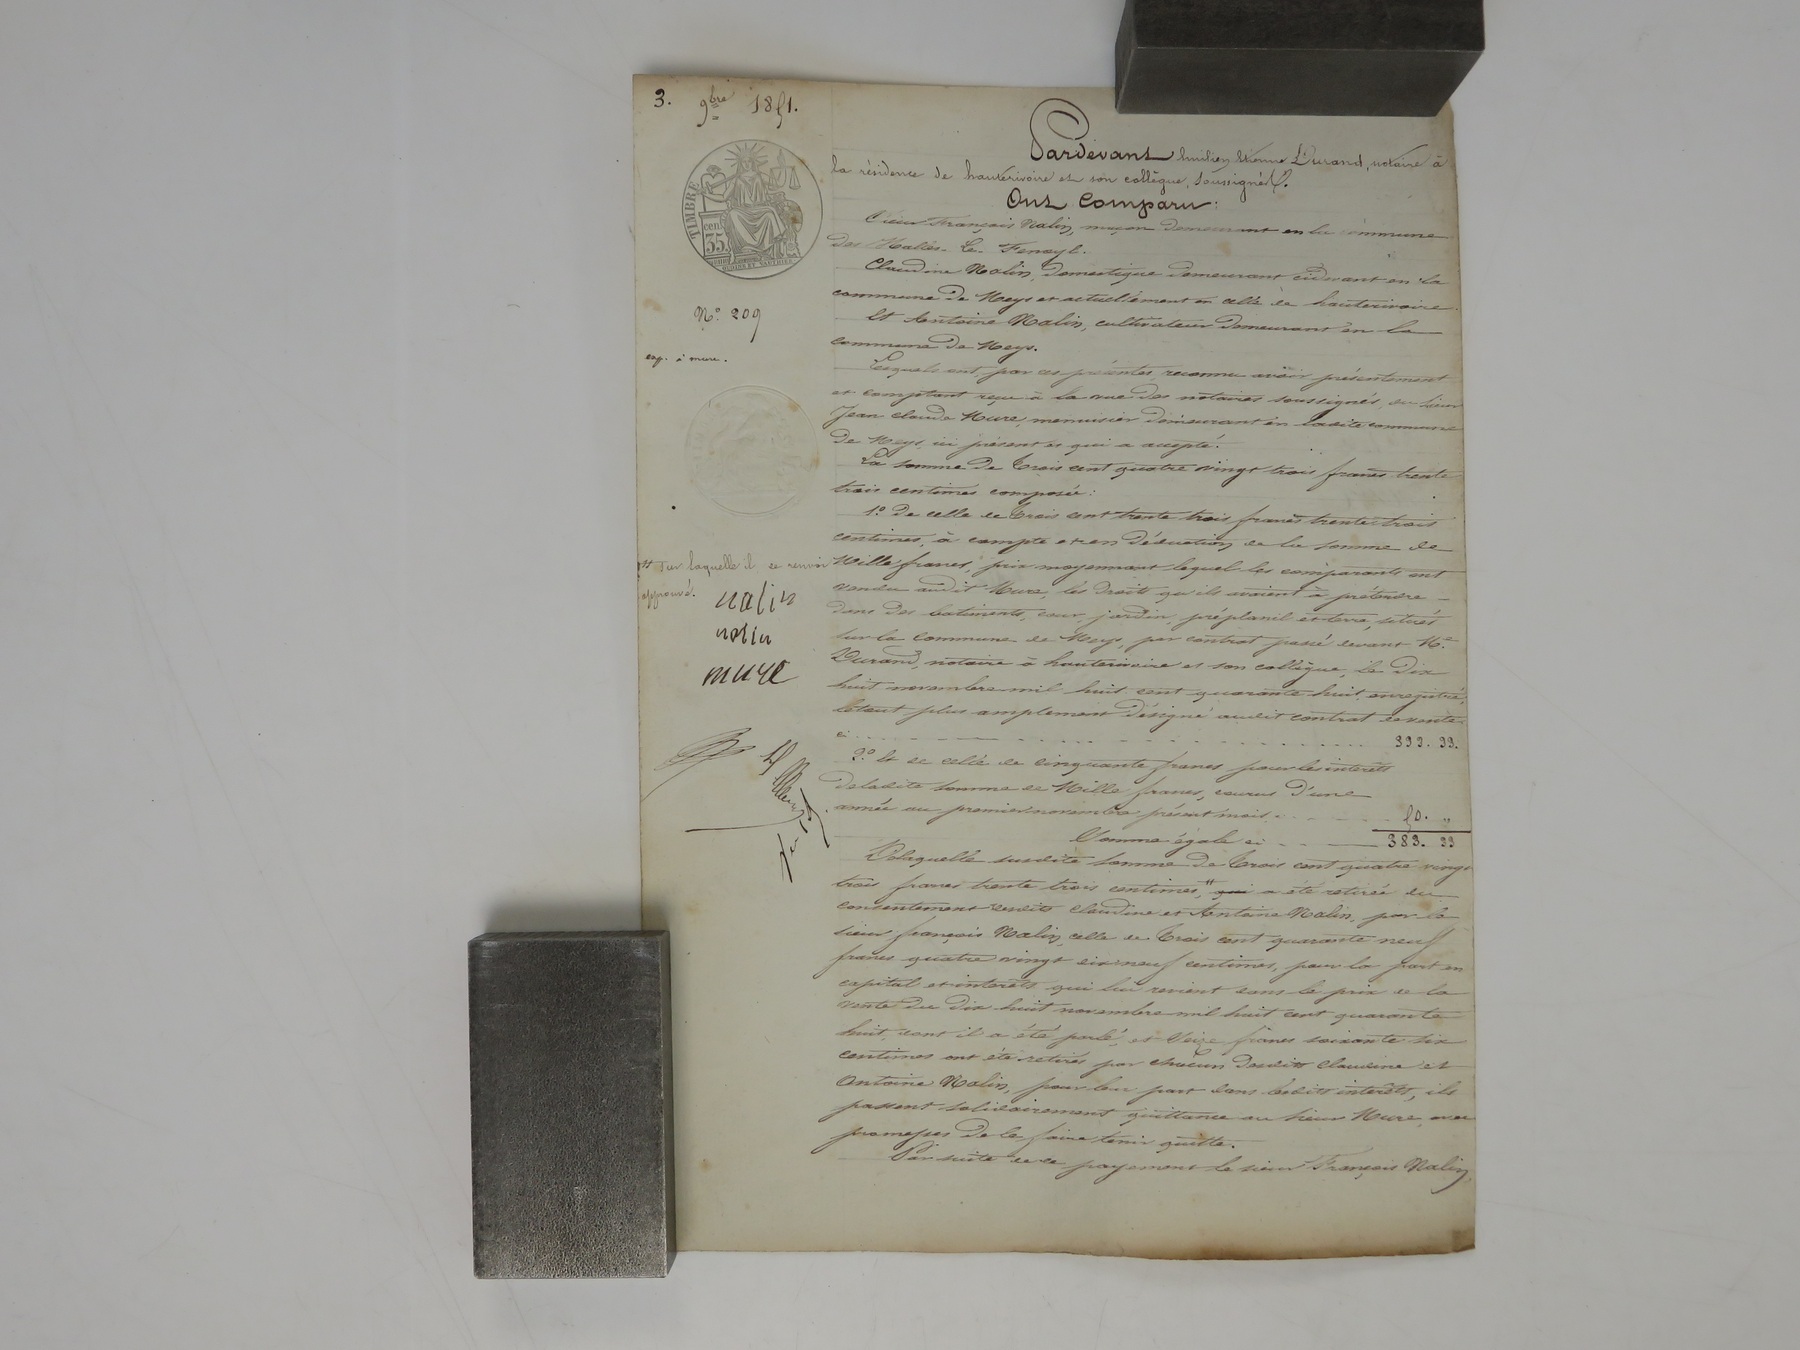 3. 9bre 1851.
TIMBRE
cen.
35.
GLOIRE ET PATRIE
N.o 209
exp. à mure.
" sur laquelle il se renvoi
approuvé.
nalin
nolin
mure
Pardevant Etienne Durand, notaire à
la résidence de hauterivoire et son collègue, soussignés.
Ont Comparu:
Sieur François Nalin, maçon demeurant en la commune
des Halles-Le-Fenoyl.
Claudine Nalin, domestique demeurant cidevant en la
commune de Meys et actuellement en celle de hauterivoire
Et Antoine Nalin, cultivateur demeurant en la
commune de Meys.
Lesquels ont, par ces présentes, reconnu avoir présentement
et comptant reçu à la vue des notaires soussignés, du sieur
Jean Claude Mure, menuisier demeurant en ladite commune
de Meys, ici présent et qui a accepté.
La somme de Trois cent quatre vingt trois francs trente
trois centimes composée:
1.o De celle de Trois cent trente trois francs trente trois
centimes, à compte et en déduction de la somme de
Mille francs, prix moyennant lequel les comparants ont
vendu audit Mure, les droits qu'ils avaient à prétendre
dans des batiments, cour, jardin, pré et terre, situés
sur la commune de Meys, par contrat passé devant M.e
Durand, notaire à hauterivoire et son collègue, le Dix
huit novembre mil huit cent quarante huit, enregistré,
le tout plus amplement désigné audit contrat de vente
ci 333. 33.
2.o Et de celle de cinquante francs pour les intérêts
de ladite somme de Mille francs, courus d'une
année au premier novembre présent mois. 50. "
Somme égale ci 383. 33
De laquelle susdite somme de Trois cent quatre vingt
trois francs trente trois centimes, " qui a été retirée du
consentement desdits Claudine et Antoine Nalin, par le
sieur françois Nalin, celle de Trois cent quarante neuf
francs quatre vingt dix neuf centimes, pour la part en
capital et intérêts qui lui revient dans le prix de la
vente du Dix huit novembre mil huit cent quarante
huit, dont il a été parlé, et Seize francs soixante six
centimes ont été retirés par chacun desdits Claudine et
Antoine Nalin, pour leur part dans lesdits intérêts, ils
passent solidairement quittance au sieur Mure, avec
promesses de le faire tenir quitte.
Par suite de ce payement le sieur François Nalin,